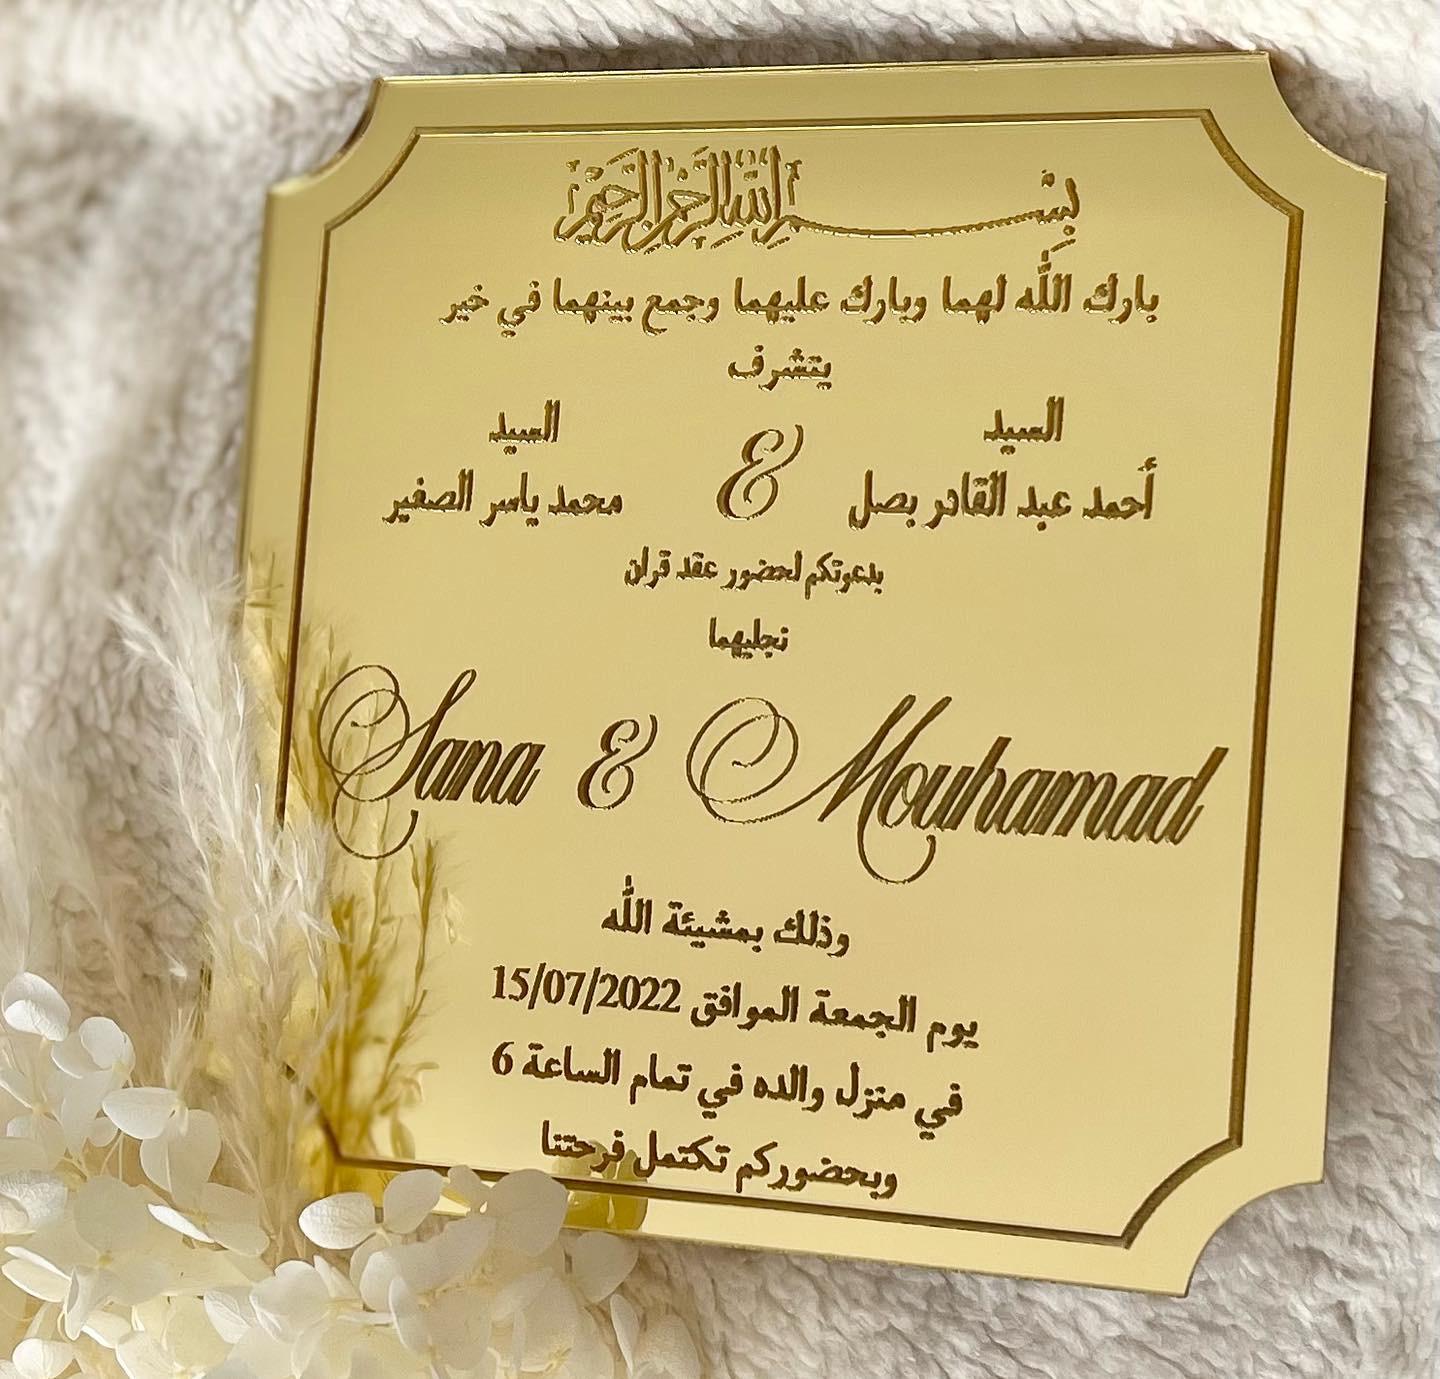 بسم الله الرحمن الرحيم
بارك الله لهما وبارك عليهما وجمع بينهما في خير
يتشرف
السيد السيد
أحمد عبد القادر بصل & محمد ياسر الصغير
بدعوتكم لحضور عقد قران
نجليهما
Sana & Mouhamad
وذلك بمشيئة الله
يوم الجمعة الموافق 15/07/2022
في منزل والده في تمام الساعة 6
وبحضوركم تكتمل فرحتنا